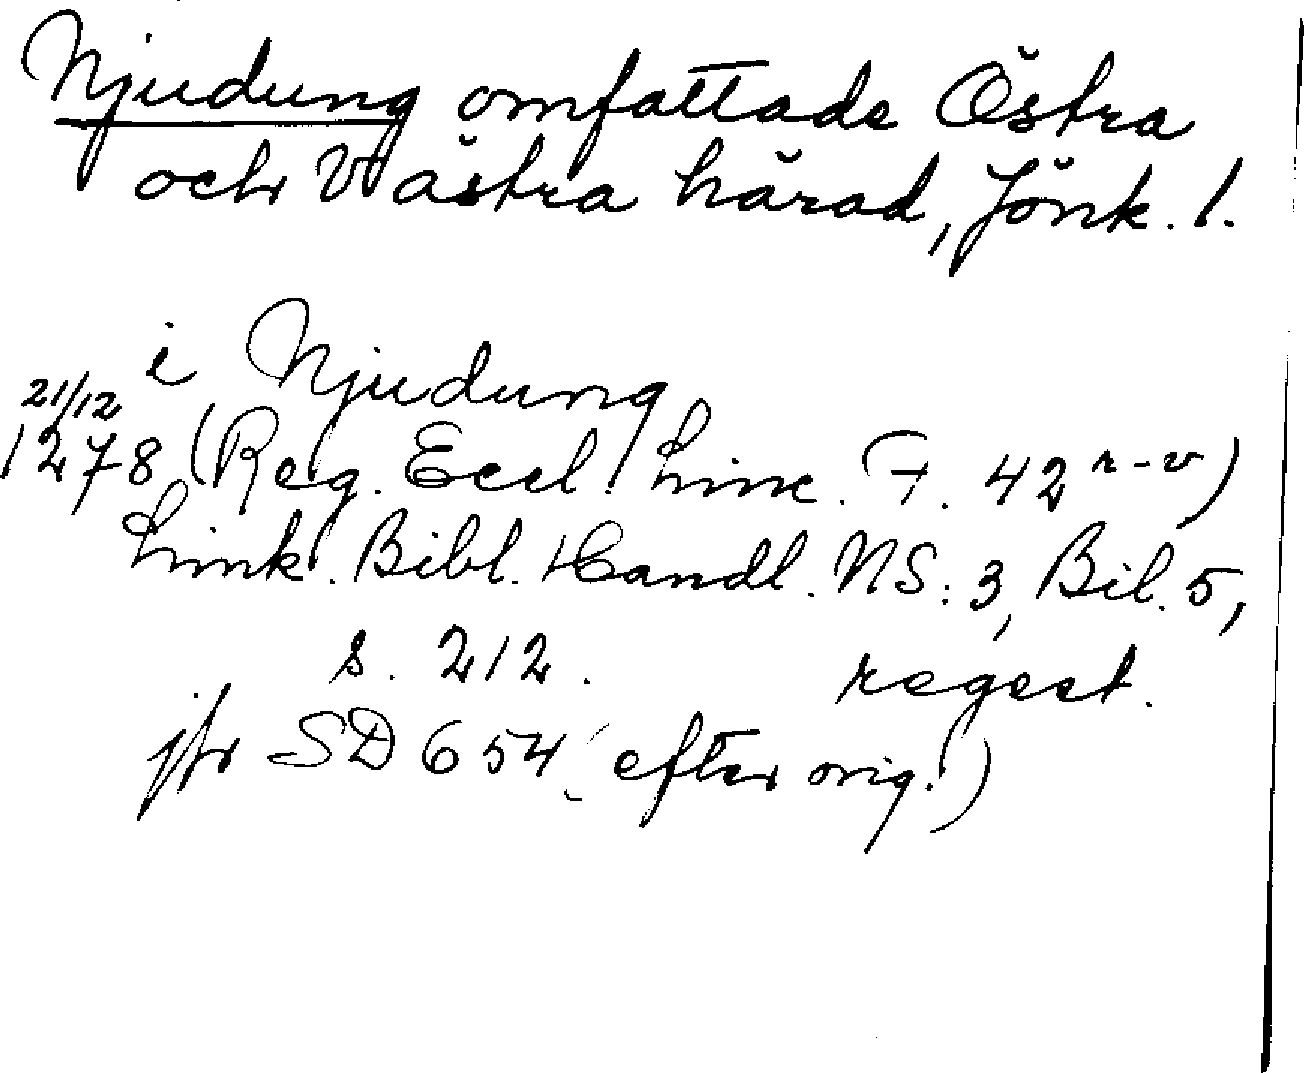 Njudung omfattade Östra
och Västra härad, Jönk. l.
i Njudung
21/12
1278 (Reg. Eccl. Linc. F. 42 r-v)
Link. Bibl. Handl. NS: 3, Bil. 5,
s. 212. regest.
jfr SD 654 (efter orig.)